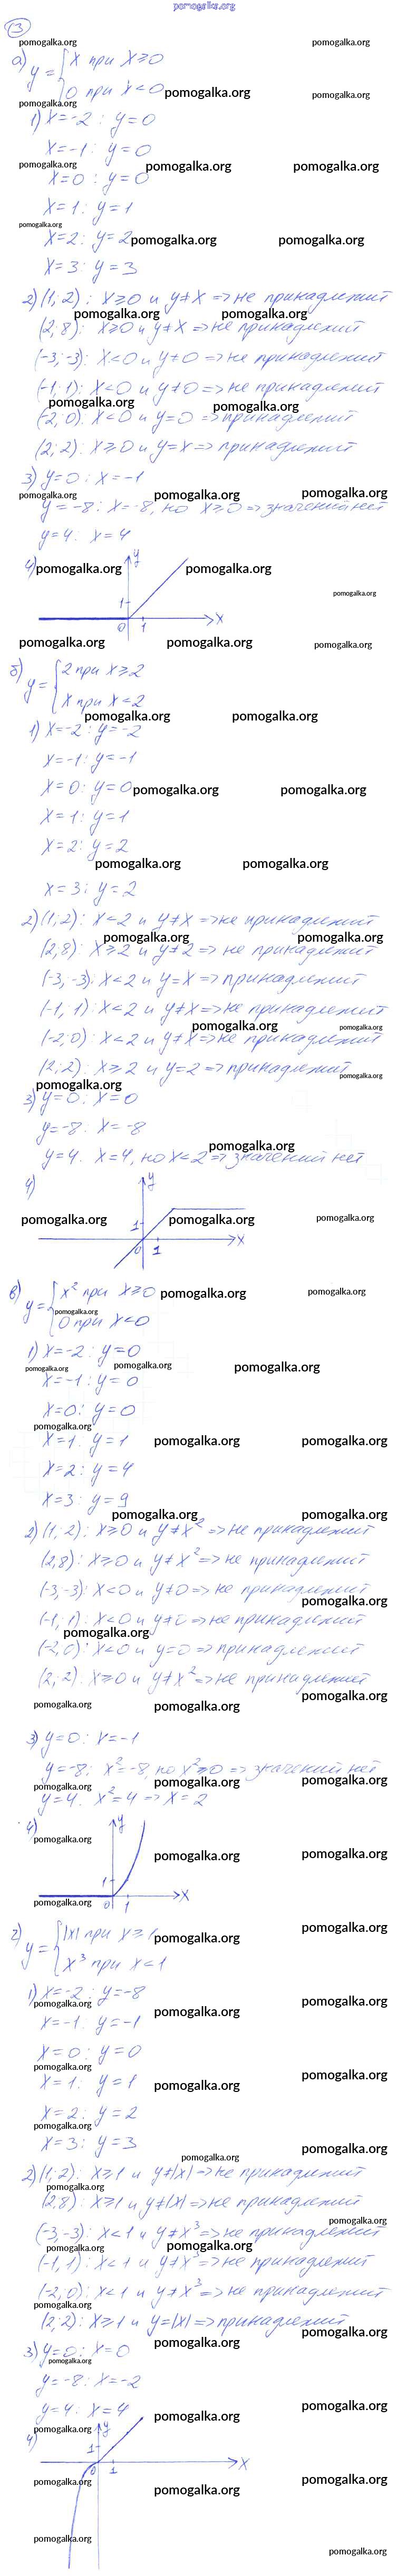 pomogalka.org
13
а) y = { x при x ≥ 0
0 при x < 0
1) x = -2 : y = 0
x = -1 : y = 0
x = 0 : y = 0
x = 1 : y = 1
x = 2 : y = 2
x = 3 : y = 3
2) (1; 2) : x ≥ 0 и y ≠ x => не принадлежит
(2; 8) : x ≥ 0 и y ≠ x => не принадлежит
(-3; -3) : x < 0 и y ≠ 0 => не принадлежит
(-1; 1) : x < 0 и y ≠ 0 => не принадлежит
(-2; 0) : x < 0 и y = 0 => принадлежит
(2; 2) : x ≥ 0 и y = x => принадлежит
3) y = 0 : x = -1
y = -8 : x = -8, но x ≥ 0 => значений нет
y = 4 : x = 4
4) y 1 0 1 x
б) y = { 2 при x ≥ 2
x при x < 2
1) x = -2 : y = -2
x = -1 : y = -1
x = 0 : y = 0
x = 1 : y = 1
x = 2 : y = 2
x = 3 : y = 2
2) (1; 2) : x < 2 и y ≠ x => не принадлежит
(2; 8) : x ≥ 2 и y ≠ 2 => не принадлежит
(-3; -3) : x < 2 и y = x => принадлежит
(-1; 1) : x < 2 и y ≠ x => не принадлежит
(-2; 0) : x < 2 и y ≠ x => не принадлежит
(2; 2) : x ≥ 2 и y = 2 => принадлежит
3) y = 0 : x = 0
y = -8 : x = -8
y = 4 : x = 4, но x < 2 => значений нет
4) y 1 0 1 x
в) y = { x² при x ≥ 0
0 при x < 0
1) x = -2 : y = 0
x = -1 : y = 0
x = 0 : y = 0
x = 1 : y = 1
x = 2 : y = 4
x = 3 : y = 9
2) (1; 2) : x ≥ 0 и y ≠ x² => не принадлежит
(2; 8) : x ≥ 0 и y ≠ x² => не принадлежит
(-3; -3) : x < 0 и y ≠ 0 => не принадлежит
(-1; 1) : x < 0 и y ≠ 0 => не принадлежит
(-2; 0) : x < 0 и y = 0 => принадлежит
(2; 2) : x ≥ 0 и y ≠ x² => не принадлежит
3) y = 0 : x = -1
y = -8 : x² = -8, но x² ≥ 0 => значений нет
y = 4 : x² = 4 => x = 2
4) y 1 0 1 x
г) y = { |x| при x ≥ 1
x³ при x < 1
1) x = -2 : y = -8
x = -1 : y = -1
x = 0 : y = 0
x = 1 : y = 1
x = 2 : y = 2
x = 3 : y = 3
2) (1; 2) : x ≥ 1 и y ≠ |x| => не принадлежит
(2; 8) : x ≥ 1 и y ≠ |x| => не принадлежит
(-3; -3) : x < 1 и y ≠ x³ => не принадлежит
(-1; 1) : x < 1 и y ≠ x³ => не принадлежит
(-2; 0) : x < 1 и y ≠ x³ => не принадлежит
(2; 2) : x ≥ 1 и y = |x| => принадлежит
3) y = 0 : x = 0
y = -8 : x = -2
y = 4 : x = 4
4) y 1 0 1 x